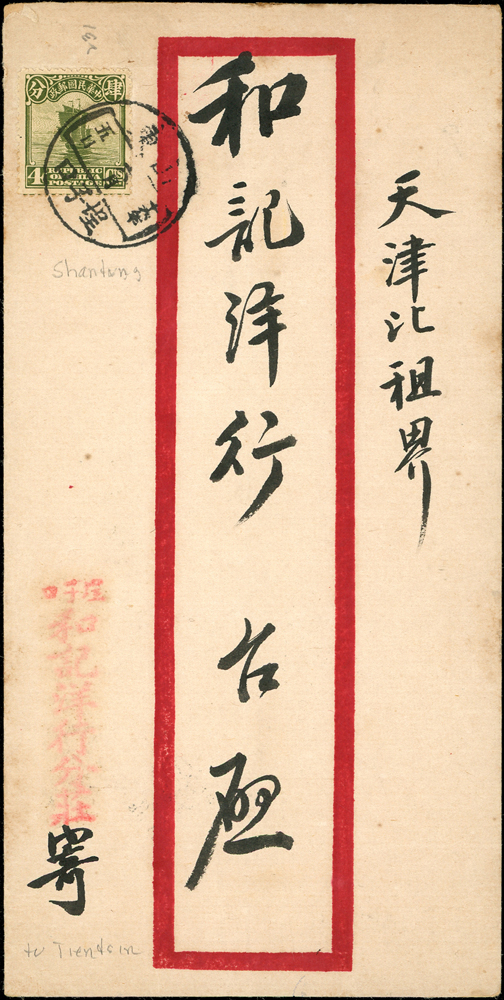 天津比租界
和記洋行 台啟
中華民國郵政
肆
分
4
CTS
REPUBLIC
OF CHINA
POSTAGE
Shantung
埕子口
和記洋行分莊
寄
to Tientsin